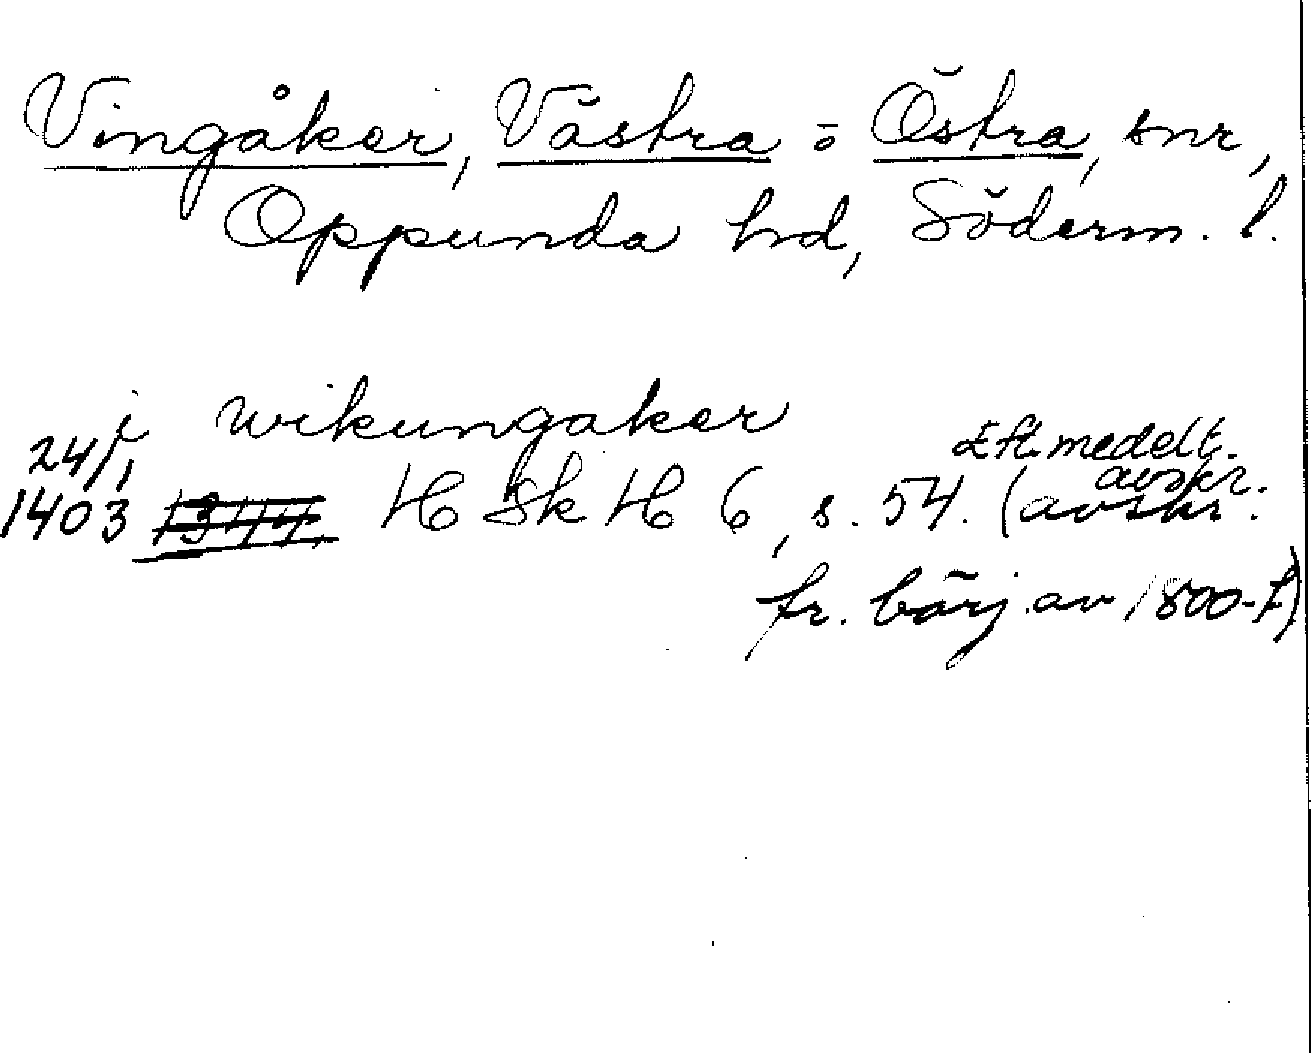 Vingåker, Västra o Östra, snr,
Oppunda hd, Söderm. l.
i wikungaker
24/1
1403 1344, H Sk H 6, s. 54. (avskr.
Eft. medelt.
avskr.
fr. börj. av 1800-t)